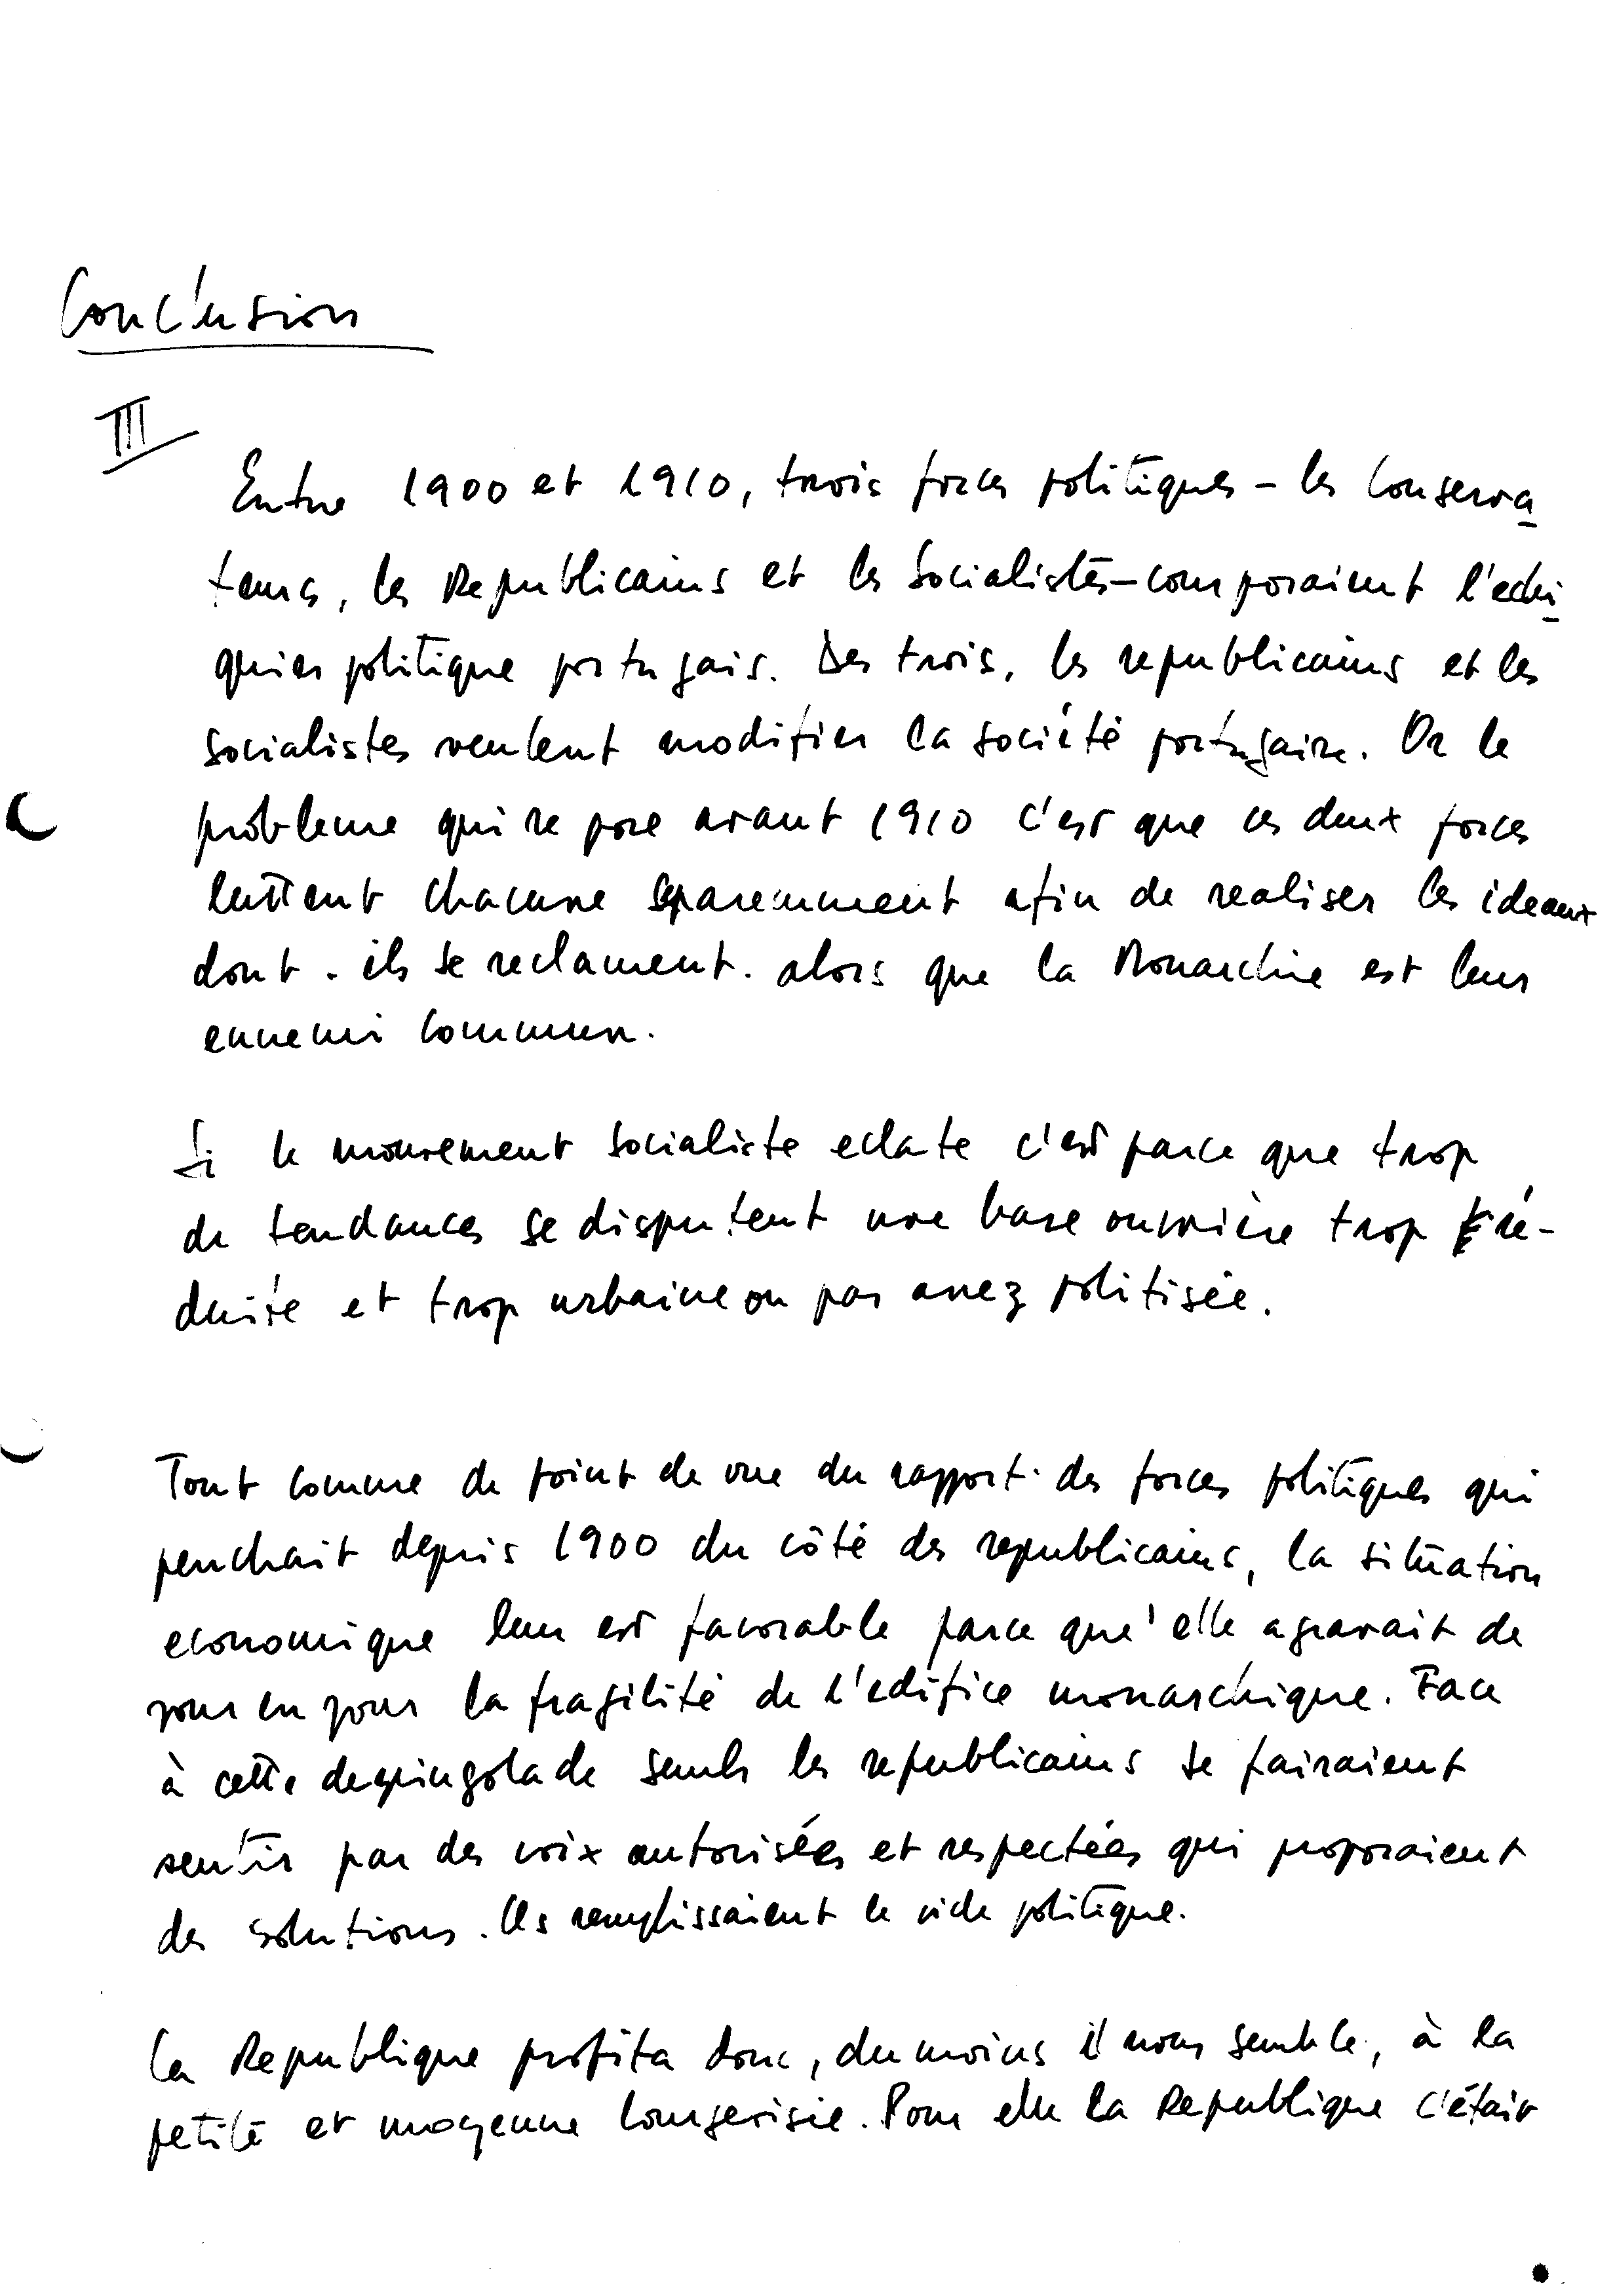 Conclusion
III
Entre 1900 et 1910, trois forces politiques – les Conserva
teurs, les Republicains et les Socialistes – composaient l'echi
quier politique portugais. Des trois, les republicains et les
socialistes veulent modifier la société portugaise. Or le
probleme qui se pose avant 1910 c'est que ces deux forces
luttent chacune separemment afin de realiser les ideaux
dont . ils se reclament. alors que la Monarchie est leur
ennemi commun.
Si le mouvement socialiste eclate c'est parce que trop
de tendances se disputent une base ouvrière trop ré-
duite et trop urbaine ou pas assez politisée.
Tout comme de point de vue du rapport des forces politiques qui
penchait depuis 1900 du côté des republicains, la situation
economique leur est favorable parce qu'elle agravait de
jour en jour la fragilité de l'edifice monarchique. Face
à cette degringolade seuls les republicains se faisaient
sentir par des voix autorisées et respectées qui proposaient
des solutions. Ils remplissaient le vide politique.
La Republique profita donc, du moins il nous semble, à la
petite et moyenne bourgeoisie. Pour elle la Republique c'était